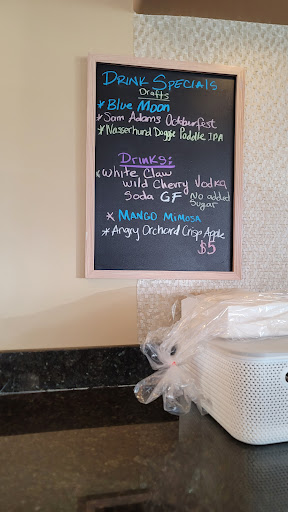 DRINK SPECIALS
Drafts
* Blue Moon
* Sam Adams Octoberfest
* Wasserhund Doggie Paddle IPA
DRINKS:
* White Claw
Wild Cherry Vodka
Soda GF No added Sugar
* MANGO MIMOSA
* Angry Orchard Crisp Apple
$5